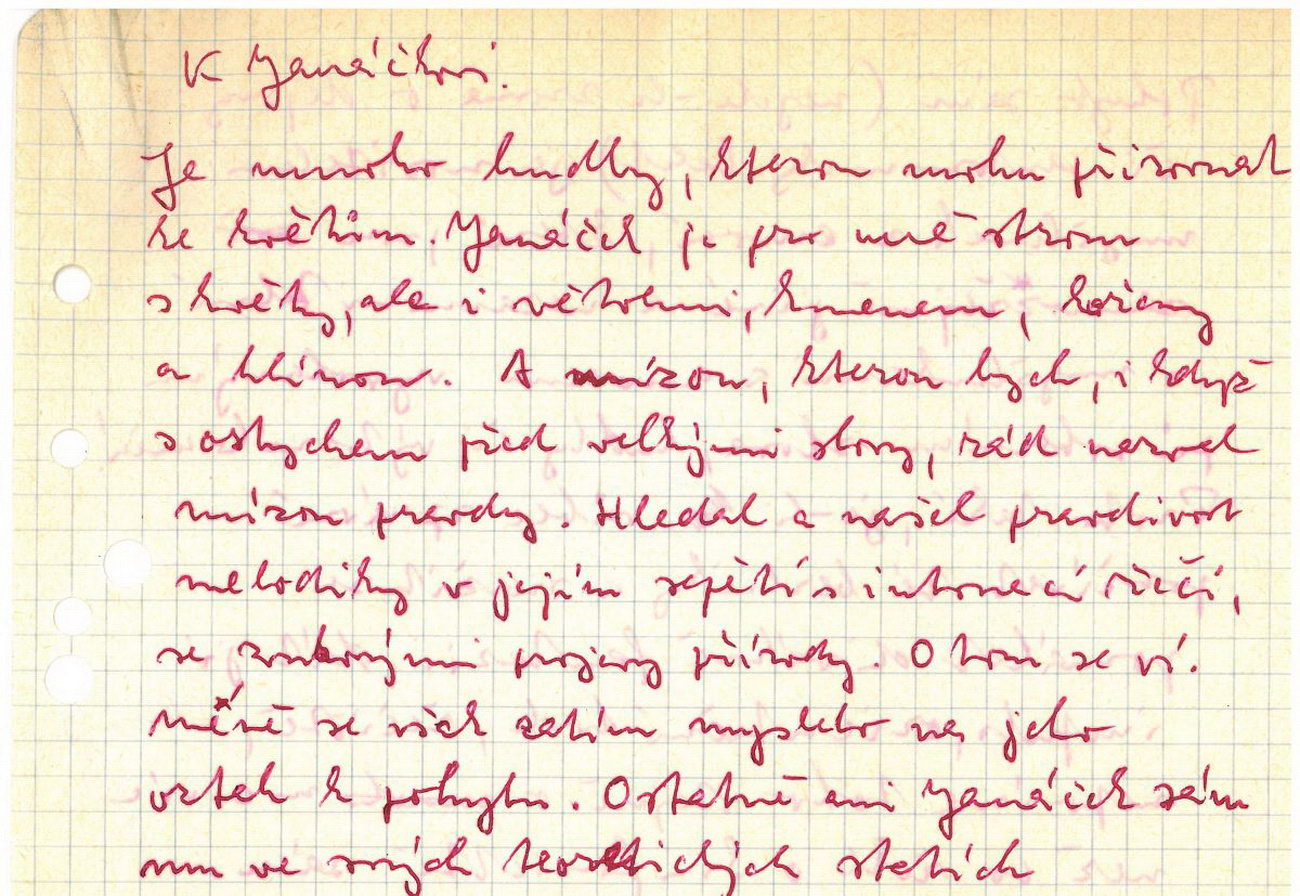 K Janáčkovi.
Je mnoho hudby, kterou mohu přirovnat
ke květům. Janáček je pro mně strom
s květy, ale i větvemi, kmenem, kořeny
a hlínou. A mízou, kterou bych, i když
s ostychem před velkými slovy, rád nazval
mízou pravdy. Hledal a našel pravdivost
melodiky v jejím sepětí s intonací řeči,
se zvukovými projevy přírody. O tom se ví.
Méně se však zatím myslelo na jeho
vztah k pohybu. Ostatně ani Janáček sám
mu ve svých teoretických statích